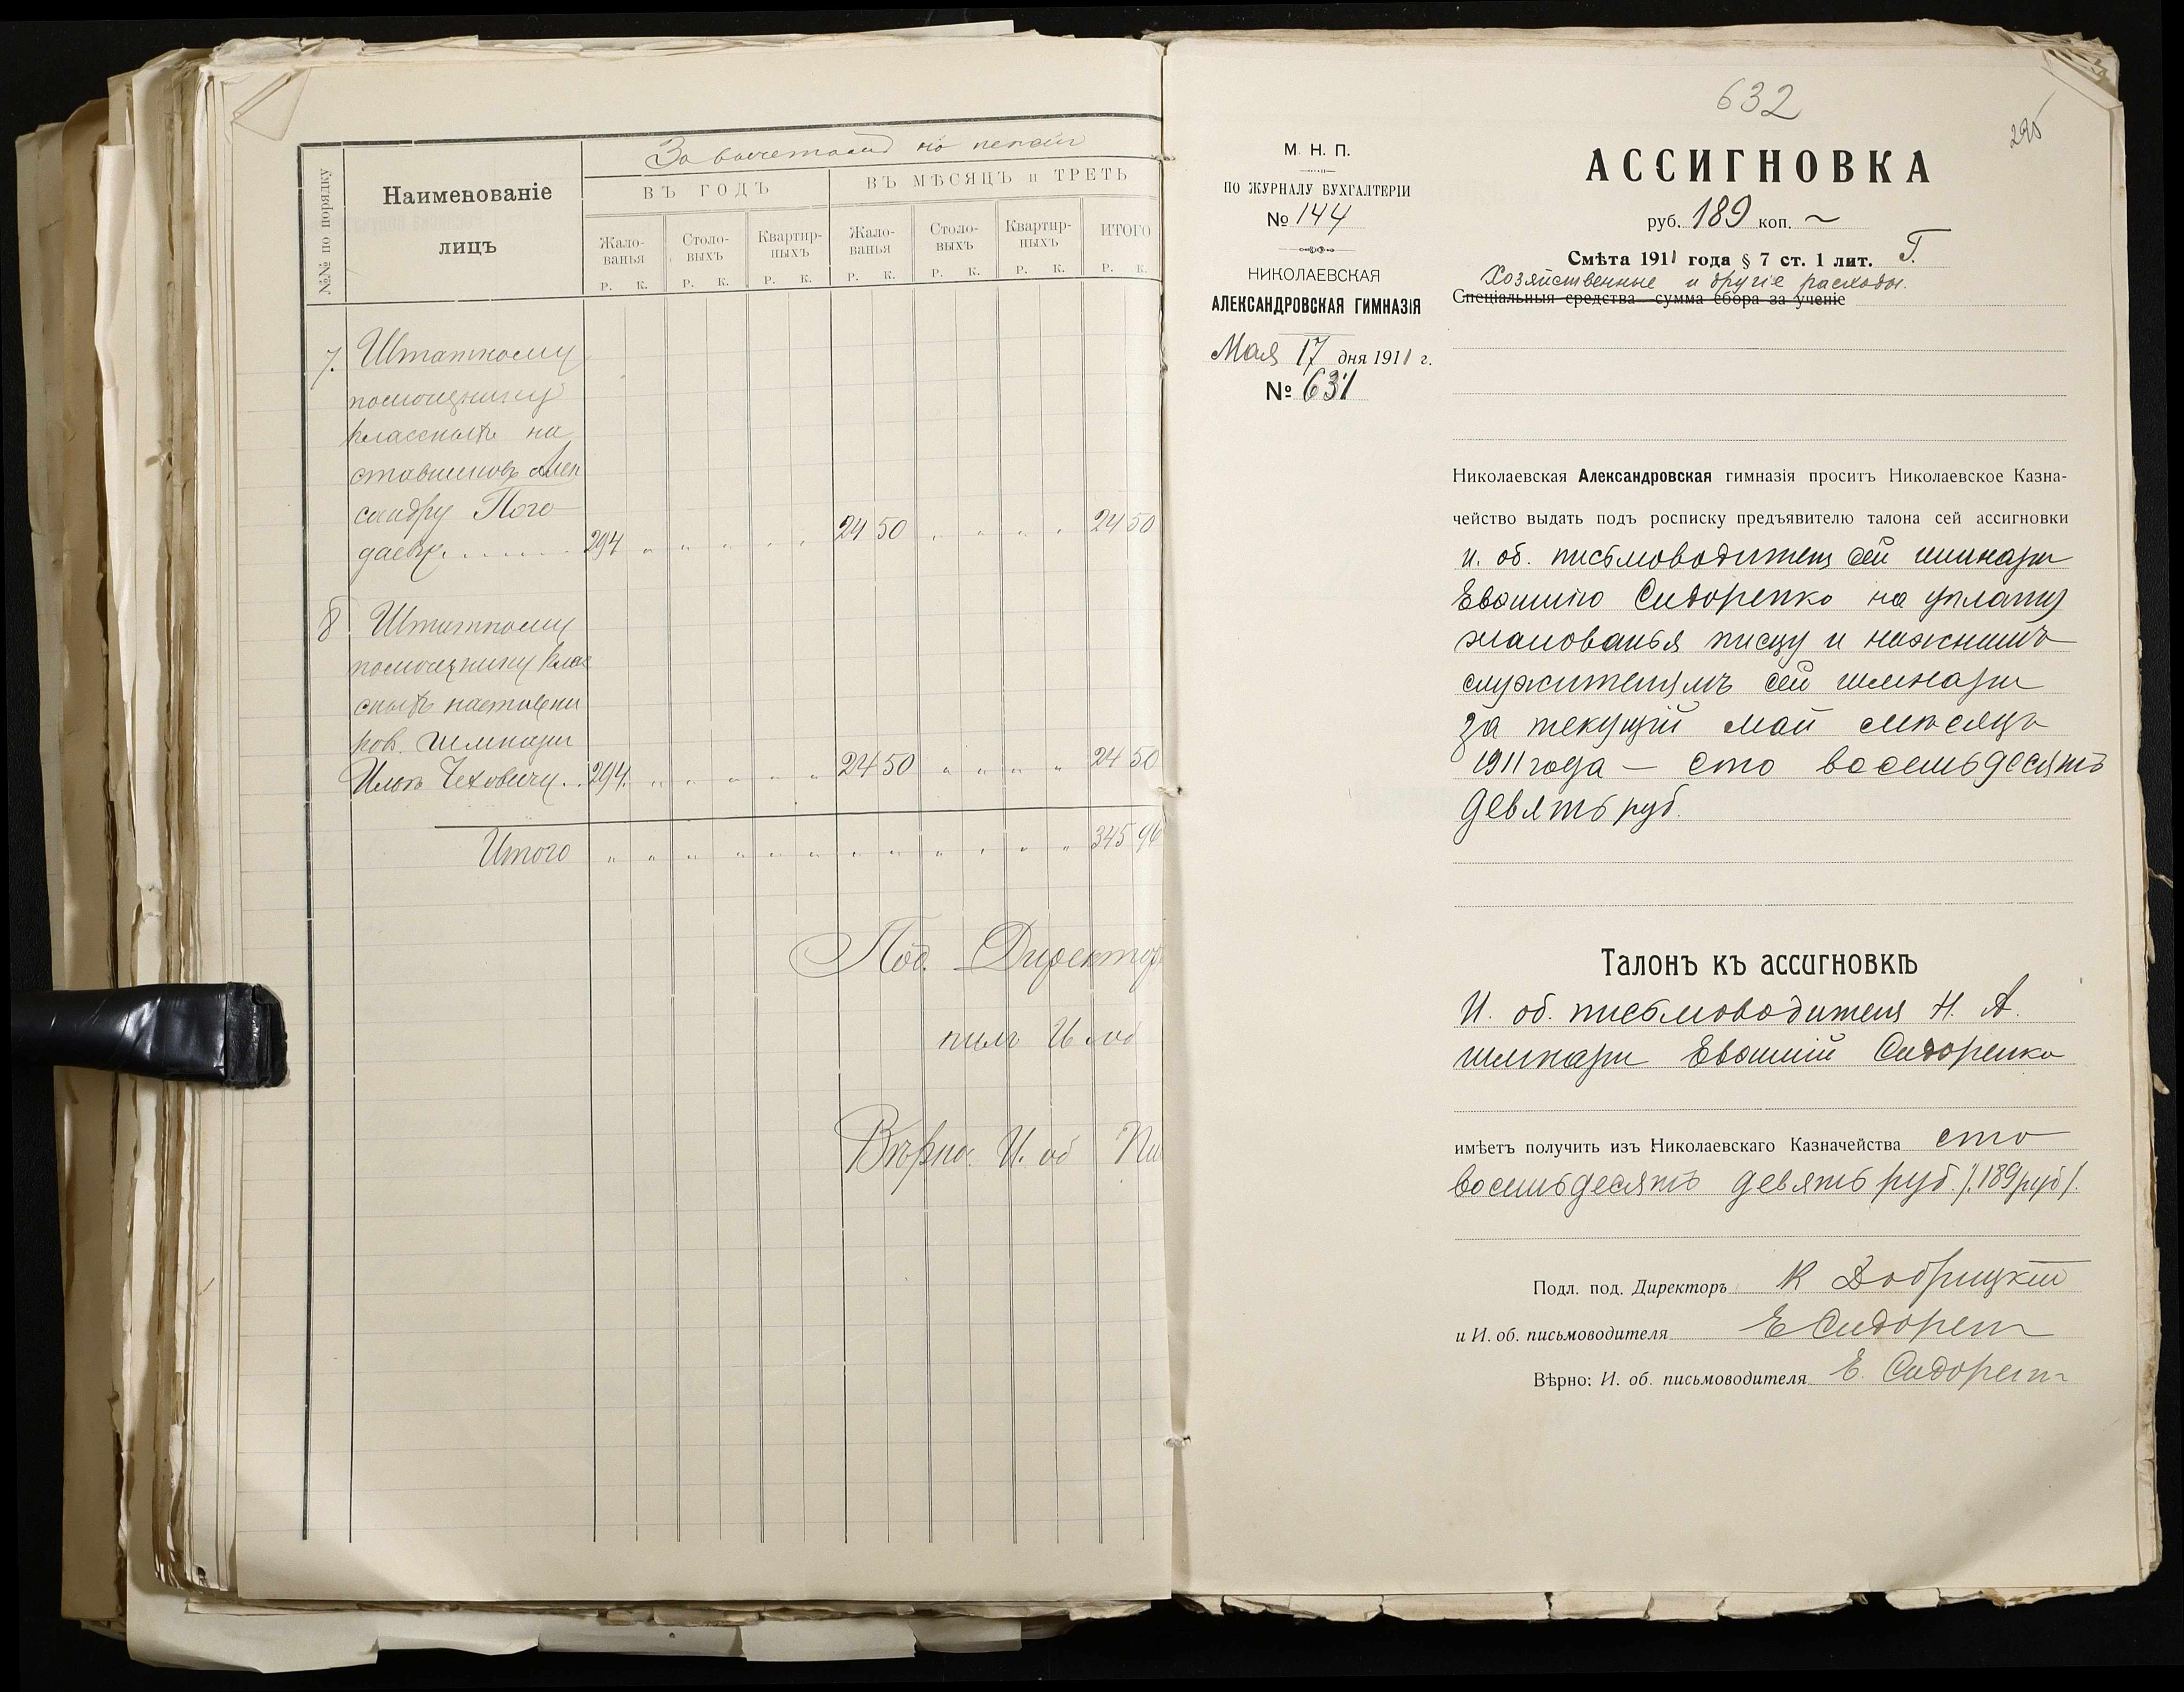 За вычетомъ на пенсіи
№№ по порядку
Наименованіе
лицъ
ВЪ ГОДЪ
ВЪ МѢСЯЦЪ и ТРЕТЬ
Жало-
ванья
Столо-
выхъ
Квартир-
ныхъ
Жало-
ванья
Столо-
выхъ
Квартир-
ныхъ
ИТОГО
Р. К. Р. К. Р. К. Р. К. Р. К. Р. К. Р. К.
7. Штатному
помощнику
классныхъ на
ставниковъ Алек
сандру Пого
даеву 294 24 50 24 50
8 Штатному
помощнику клас
сныхъ наставни
ковъ гимназіи
Чеховичу 294 24 50 24 50
Итого 345 96
Под. Директор
Вѣрно: И. об
632
295
М. Н. П.
ПО ЖУРНАЛУ БУХГАЛТЕРІИ
№ 144
НИКОЛАЕВСКАЯ
АЛЕКСАНДРОВСКАЯ ГИМНАЗІЯ
Мая 17 дня 1911 г.
№ 631
АССИГНОВКА
руб. 189 коп. ~
Смѣта 1911 года § 7 ст. 1 лит. Г.
Хозяйственные и другіе расходы.
Спеціальныя средства—сумма сбора за ученіе
Николаевская Александровская гимназія проситъ Николаевское Казна-
чейство выдать подъ росписку предъявителю талона сей ассигновки
и. об. письмоводителя сей гимназіи
Евфимію Сидоренко на уплату
жалованья писцу и нижнимъ
служителямъ сей гимназіи
за текущій май мѣсяцъ
1911 года — сто восемьдесятъ
девять руб.
Талонъ къ ассигновкѣ
И. об. письмоводителя Н. А.
гимназіи Евфимій Сидоренко
имѣетъ получить изъ Николаевскаго Казначейства сто
восемьдесятъ девять руб. /.189 руб/.
Подл. под. Директоръ К Добрицкій
и И. об. письмоводителя Е Сидорен
Вѣрно: И. об. письмоводителя Е. Сидорен